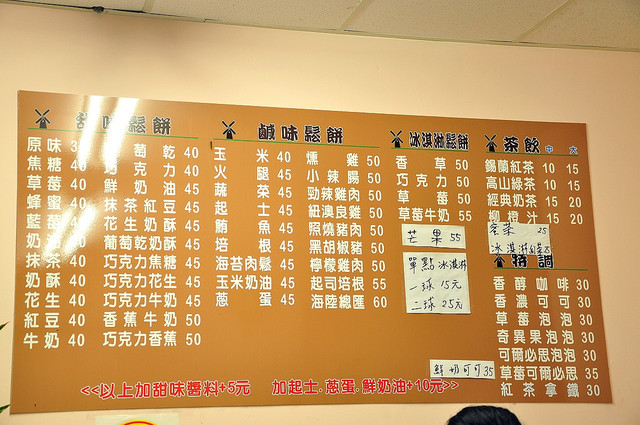 甜味鬆餅
原味 3
焦糖 40
草莓 40
蜂蜜 40
藍莓
奶油
抹茶 40
奶酥 40
花生 40
紅豆 40
牛奶 40
葡萄乾 40
巧克力 40
鮮奶油 45
抹茶紅豆 45
花生奶酥 45
葡萄乾奶酥 45
巧克力焦糖 45
巧克力花生 45
巧克力牛奶 45
香蕉牛奶 50
巧克力香蕉 50
鹹味鬆餅
玉米 40
火腿 45
蔬菜 45
起士 45
鮪魚 45
培根 45
海苔肉鬆 45
玉米奶油 45
蔥蛋 45
燻雞 50
小辣腸 50
勁辣雞肉 50
紐澳良雞 50
照燒豬肉 50
黑胡椒豬 50
檸檬雞肉 50
起司培根 55
海陸總匯 60
冰淇淋鬆餅
香草 50
巧克力 50
草莓 50
草莓牛奶 55
芒果 55
單點冰淇淋
一球 15元
二球 25元
鮮奶可可35
茶飲 中 大
錫蘭紅茶 10 15
高山綠茶 10 15
經典奶茶 15 20
柳橙汁 15 20
25
冰淇淋
特調
香醇咖啡 30
香濃可可 30
草莓泡泡 30
奇異果泡泡 30
可爾必思泡泡 30
草莓可爾必思 35
紅茶拿鐵 30
<<以上加甜味醬料+5元 加起士.蔥蛋.鮮奶油+10元>>